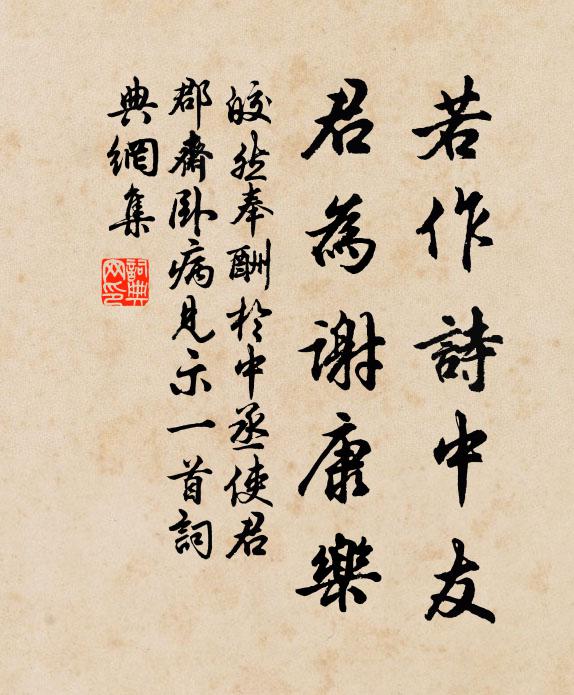 若作詩中友
君為謝康樂
皎然奉酬於中丞使君
郡齋臥病見示一首詞
典網集
詞典網印